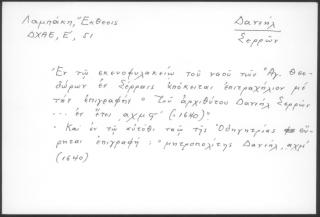 Λαμπάκη, Ἔκθεσις
ΔΧΑΕ, Ε΄, 51
Δανιήλ
Σερρῶν
"Ἐν τῷ σκευοφυλακείῳ τοῦ ναοῦ τῶν Ἁγ. Θεο-
δώρων ἐν Σέρραις ἀπόκειται ἐπιτραχήλιον μὲ
τὴν ἐπιγραφήν "Τοῦ ἀρχιθύτου Δανιὴλ Σερρῶν
... ἐν ἔτει ͵αχμ (1640)"
Καὶ ἐν τῷ αὐτόθι ναῷ τῆς Ὁδηγητρίας εὕ-
ρηται ἐπιγραφή : "μητροπολίτης Δανιήλ, αχμ΄
(1640)